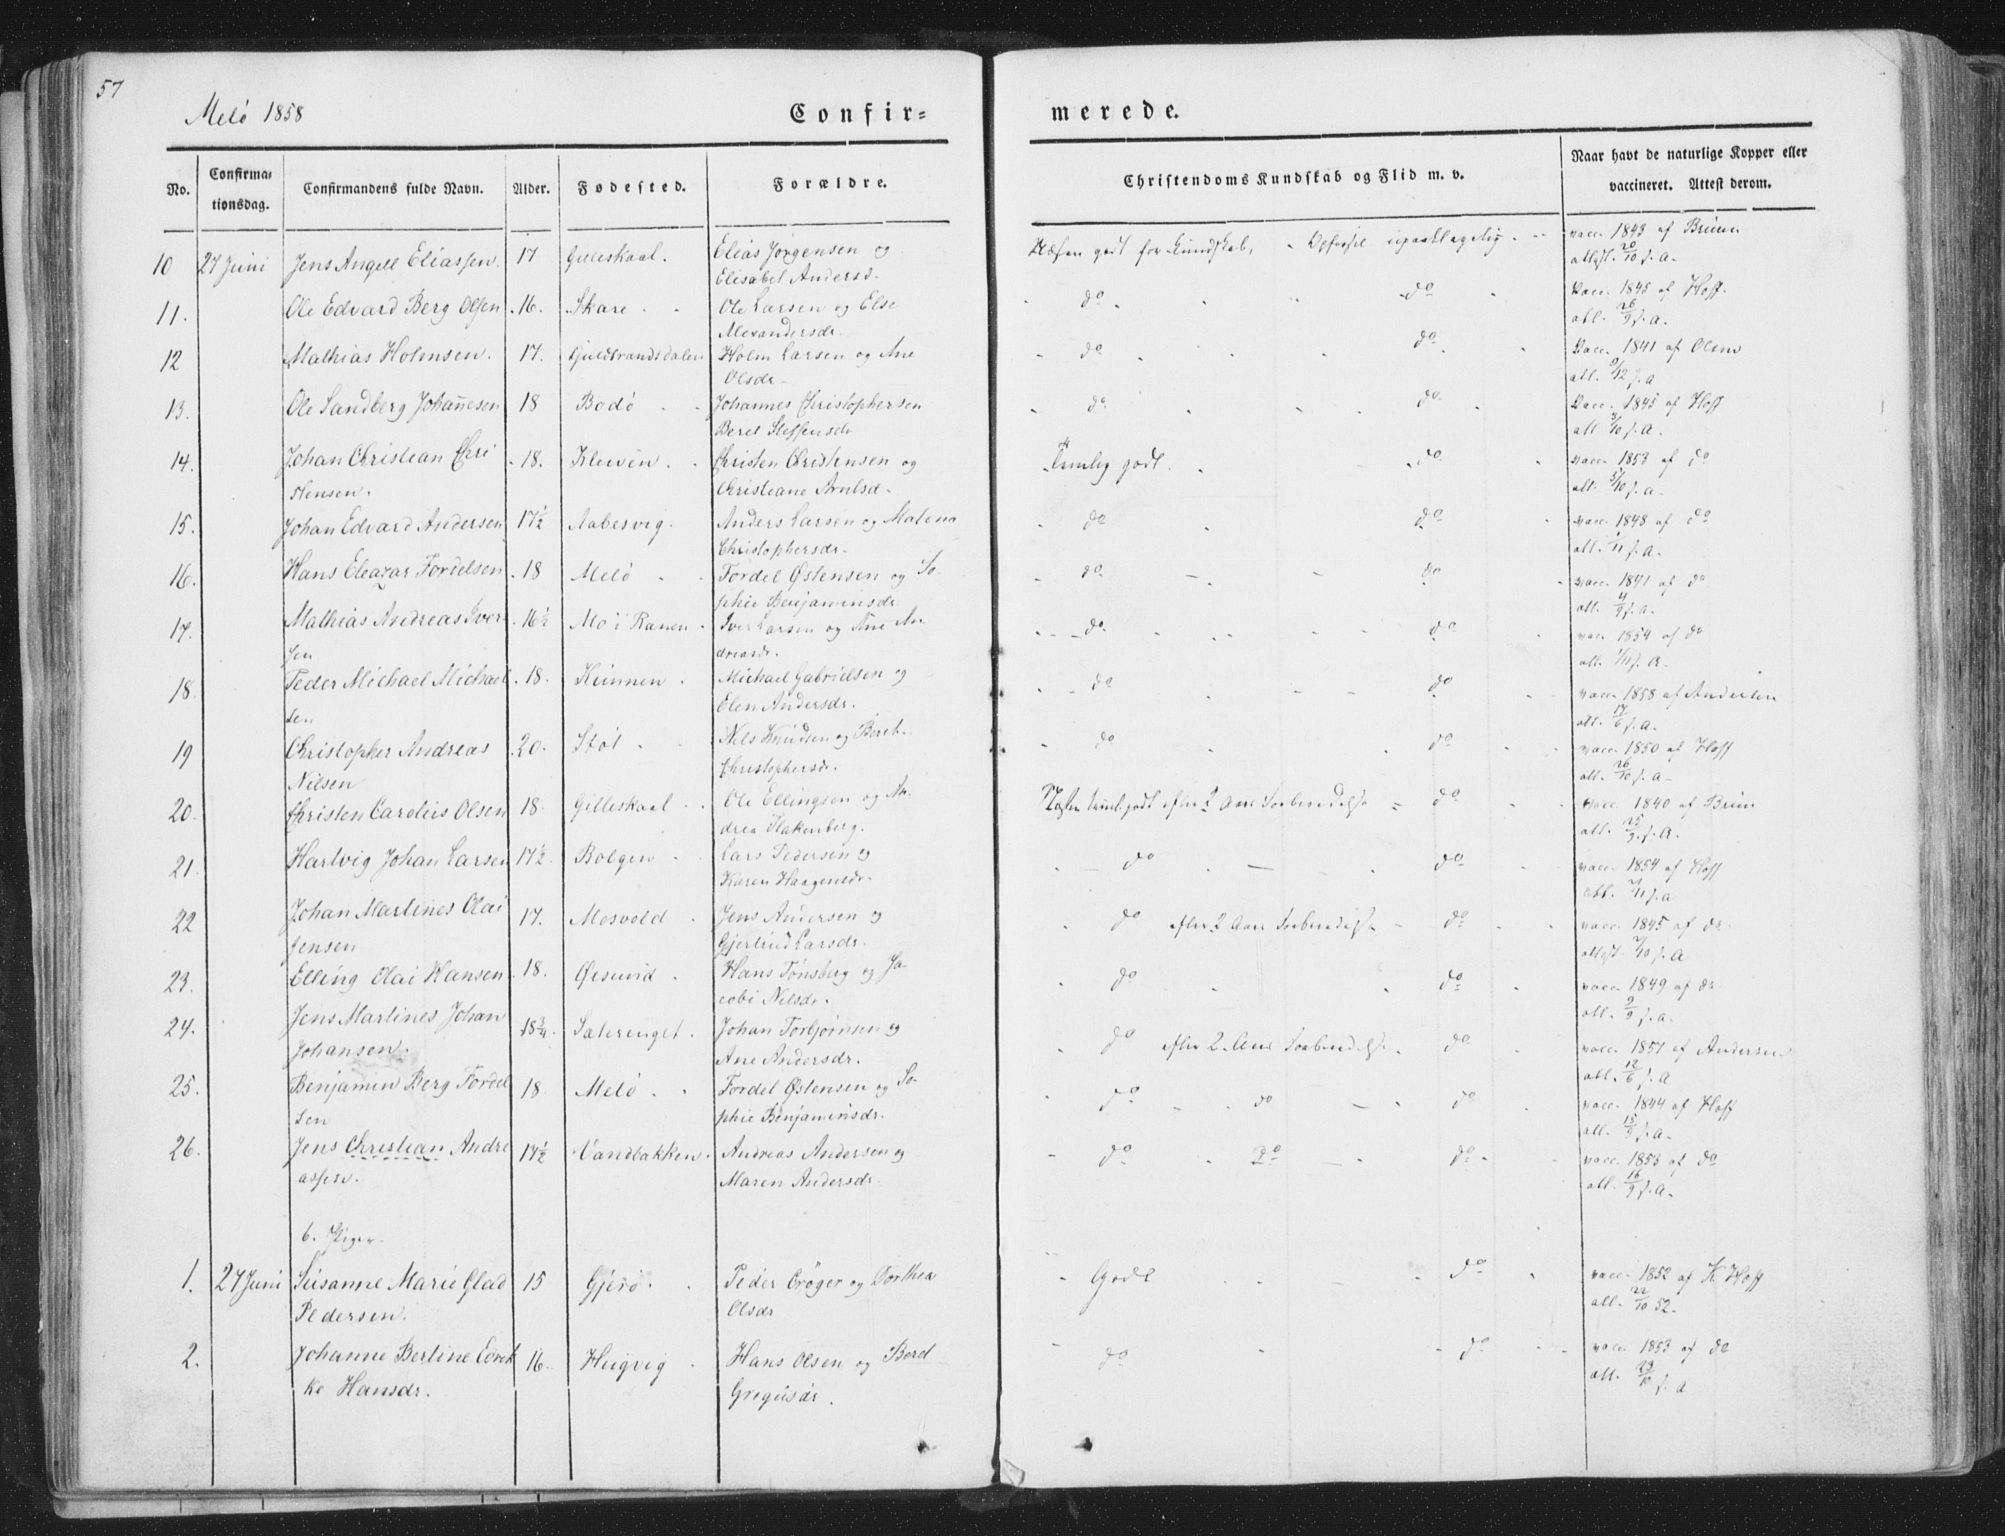 57
Melö 1858
Confir=
merede.
No.
Confirma=
tionsdag.
Confirmandens fulde Navn.
Alder.
Fødested.
Forældre.
Christendoms Kundskab og Flid m. v.
Naar havt de naturlige Kopper eller
vaccineret. Attest derom.
10 27 Juni Jens Angell Eliassen. 17 Gilleskaal. Elias Jörgensen og
Elisabet Andersd.
Næsten godt for Kundskab, Opførsel upaaklagelig. vacc. 1843 af Bruun
attest. 20/10 s. a.
11. Ole Edvard Berg Olsen 16. Skare Ole Larsen og Else
Alexandersdr.
do do Vacc. 1845 af Hoff.
att. 26/9 s. a.
12 Mathias Holmsen. 17. Guldbrandsdalen Holm Larsen og Ane
Olsdr
do do Vacc. 1841 af
att. 9/12 s. a
13. Ole Sandberg Johannesen 18 Bodö Johannes Christophersen
Beret Steffensdr
do do Vacc. 1843 af Hoff
att 3/10 s. a.
14. Johan Christian Chri 18. Kleven Christen Christensen og
stensen. Christiane Arntsd.
Temlig godt. do vacc. 1853 af do
att. 3/10 s. a.
15. Johan Edvard Andersen 17½ Aabesvig. Anders Larsen og Malena
Christophersdr.
do do vacc. 1848 af do
att. 1/11 s. a.
16. Hans Eleazar Tordelsen 18 Melö Tordel Østensen og So-
phie Benjaminsdr.
do do vacc. 1841 af do
att. 4/9 s. a.
17. Mathias Andreas Iver- 16½ Mo i Ranen Iver Larsen og Ane An
sen dreasdr.
do do vacc. 1854 af do
att. 1/11 s. a.
18. Peder Michael Michael 18. Kunnen Michael Gabrielsen og
sen Elen Andersdr.
do do vacc. 1858 af Andersen
att. 17/6 s. a.
19 Christopher Andreas 20. Stöt Nils Knudsen og Beret
Nilsen Christophersdr.
do do vacc. 1850 af Hoff
att. 26/10 s. a.
20. Christen Carolius Olsen 18. Gilleskaal Ole Ellingsen og An
drea Flakenberg.
Næsten teml. godt efter 2 Aars Forberedelse do vacc. 1840 af Bruun
att. 25/9 s. a.
21. Hartvig Johan Larsen 17½ Bolgen Lars Pedersen og
Karen Haagensdr.
do do vacc. 1854 af Hoff
att. 7/11 s. a
22 Johan Martines Olai 17. Mosvold Jens Andersen og
Jensen Gjertrud Larsdr.
do efter 2 Aars Forberedelse do vacc. 1845 af do
attest 7/10 s. a
23. Elling Olai Hansen 18. Hans Tönsberg og Ja
cobi Nilsdr.
do do vacc. 1849 af do
att. 9/9 s. a.
24. Jens Martines Johan 18¾. Johan Torbjörnsen og
Johansen. Ane Andersdr.
do efter 2 Aars Forberedelse. do vacc. 1857 af Andersen
att. 12/6 s. a
25. Benjamin Berg Tordel 18 Melö Tordel Østensen og So-
sen phie Benjaminsdr.
do do do vacc. 1844 af Hoff
att. 15/9 s. a.
26. Jens Christian Andre 17½ Vandbakken. Andreas Andersen og
assen. Maren Andersdr.
do do do vacc. 1853 af do
att. 16/9 s. a.
b. Piger.
1. 27 Juni Susanne Marie Glad 15 Gjerö. Peder Cröger og Dorthea
Pedersen. Olsdr
Godt do vacc. 1852 af K. Hoff
att. 22/10 52.
2. Johanne Bertine Edvek 16. Heigvig Hans Olsen og Berd
ke Hansdr. Gregusdr.
do do vacc. 1853 af do
att. 23/10 s. a